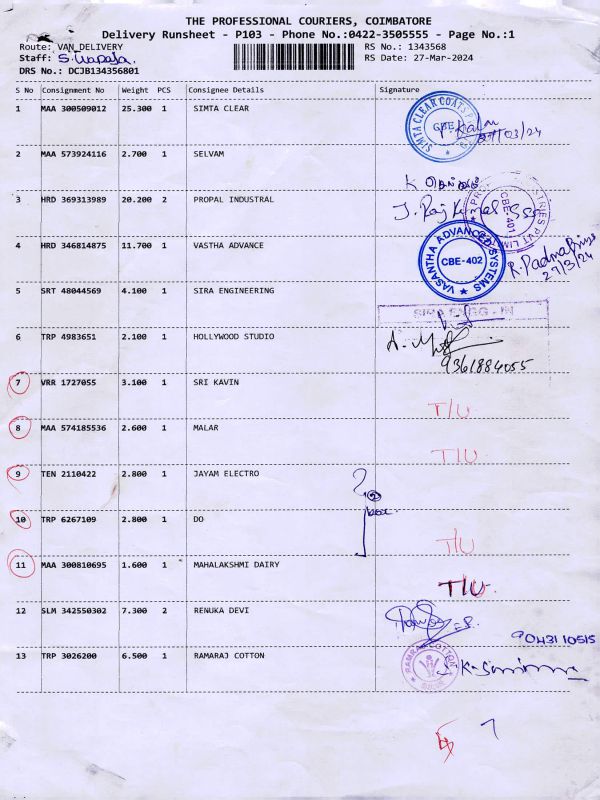 THE PROFESSIONAL COURIERS, COIMBATORE
Delivery Runsheet - P103 - Phone No.:0422-3505555 - Page No.:1
Route: VAN_DELIVERY RS No.: 1343568
Staff: RS Date: 27-Mar-2024
DRS No.: DCJB134356801
S No Consignment No Weight PCS Consignee Details Signature
1 MAA 300509012 25.300 1 SIMTA CLEAR
SIMTA CLEAR COATS
27/03/24
2 MAA 573924116 2.700 1 SELVAM
3 HRD 369313989 20.200 2 PROPAL INDUSTRAL
CBE-401
4 HRD 346814875 11.700 1 VASTHA ADVANCE
VASANTHA ADVANCED SYSTEMS
CBE-402
R. Padma Priya
27/3/24
5 SRT 48044569 4.100 1 SIRA ENGINEERING
6 TRP 4983651 2.100 1 HOLLYWOOD STUDIO
9361884055
7 VRR 1727055 3.100 1 SRI KAVIN
T/U
8 MAA 574185536 2.600 1 MALAR
T/U
9 TEN 2110422 2.800 1 JAYAM ELECTRO
10 TRP 6267109 2.800 1 DO
T/U
11 MAA 300810695 1.600 1 MAHALAKSHMI DAIRY
T/U
12 SLM 342550302 7.300 2 RENUKA DEVI
9043110515
13 TRP 3026200 6.500 1 RAMARAJ COTTON
RAMRAJ COTTON
7